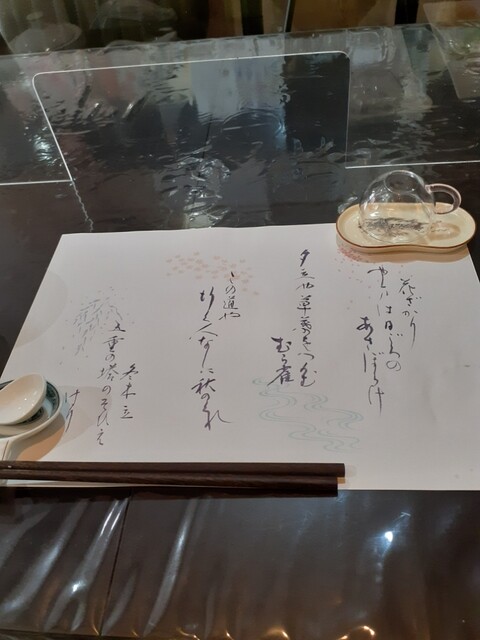 花ざかり
山は日ごろの
あさぼらけ
夕立や草葉をつかむ
むら雀
この道や
行く人なしに秋のくれ
冬木立
五重の塔のそびえ
けり